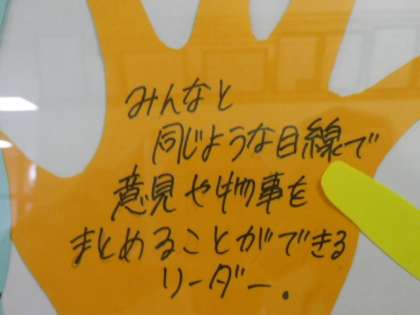 みんなと
同じような目線で
意見や物事を
まとめることができる
リーダー.